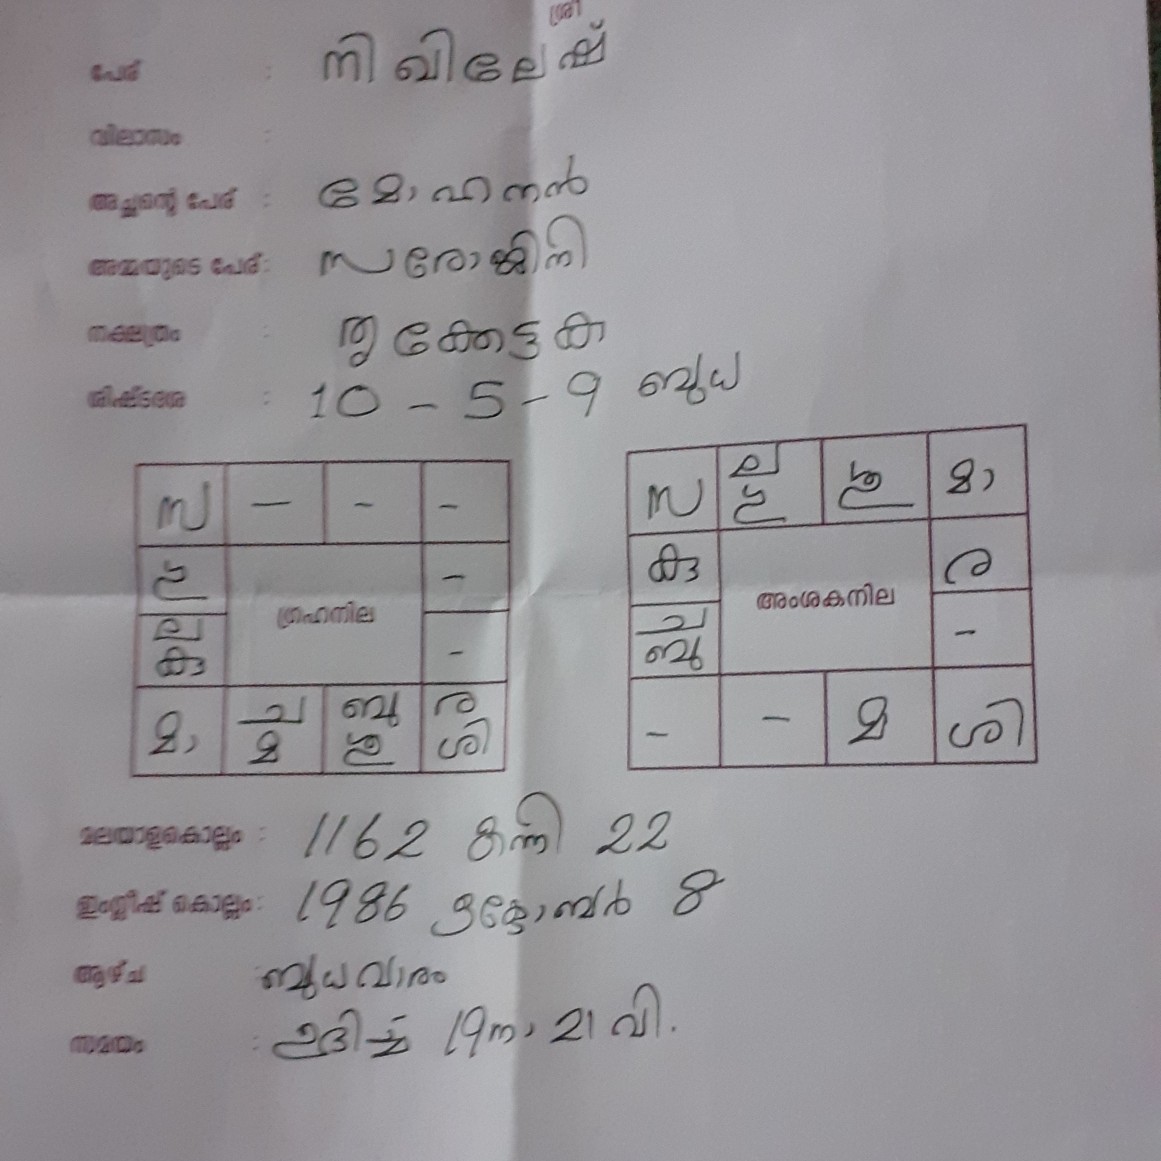 ശ്രീ
പേര് : നിഖിലേഷ്
വിലാസം :
അച്ഛന്റെ പേര് : മോഹനൻ
അമ്മയുടെ പേര് : സരോജിനി
നക്ഷത്രം : തൃക്കേട്ട ക
ശിഷ്ടദശ : 10 - 5 - 9 ബുധ
സ - - -
ഗു -
ല കു ഗ്രഹനില -
മാ ച മ ബു ശു ര ശി
സ ല ഗു ശു മാ
കു ര
ച ബു അംശകനില -
- - മ ശി
മലയാളകൊല്ലം : 1162 കന്നി 22
ഇംഗ്ലീഷ് കൊല്ലം : 1986 ഒക്ടോബർ 8
ആഴ്ച : ബുധവാരം
സമയം : ഉദിച്ച് 19 നാ 21 വി.